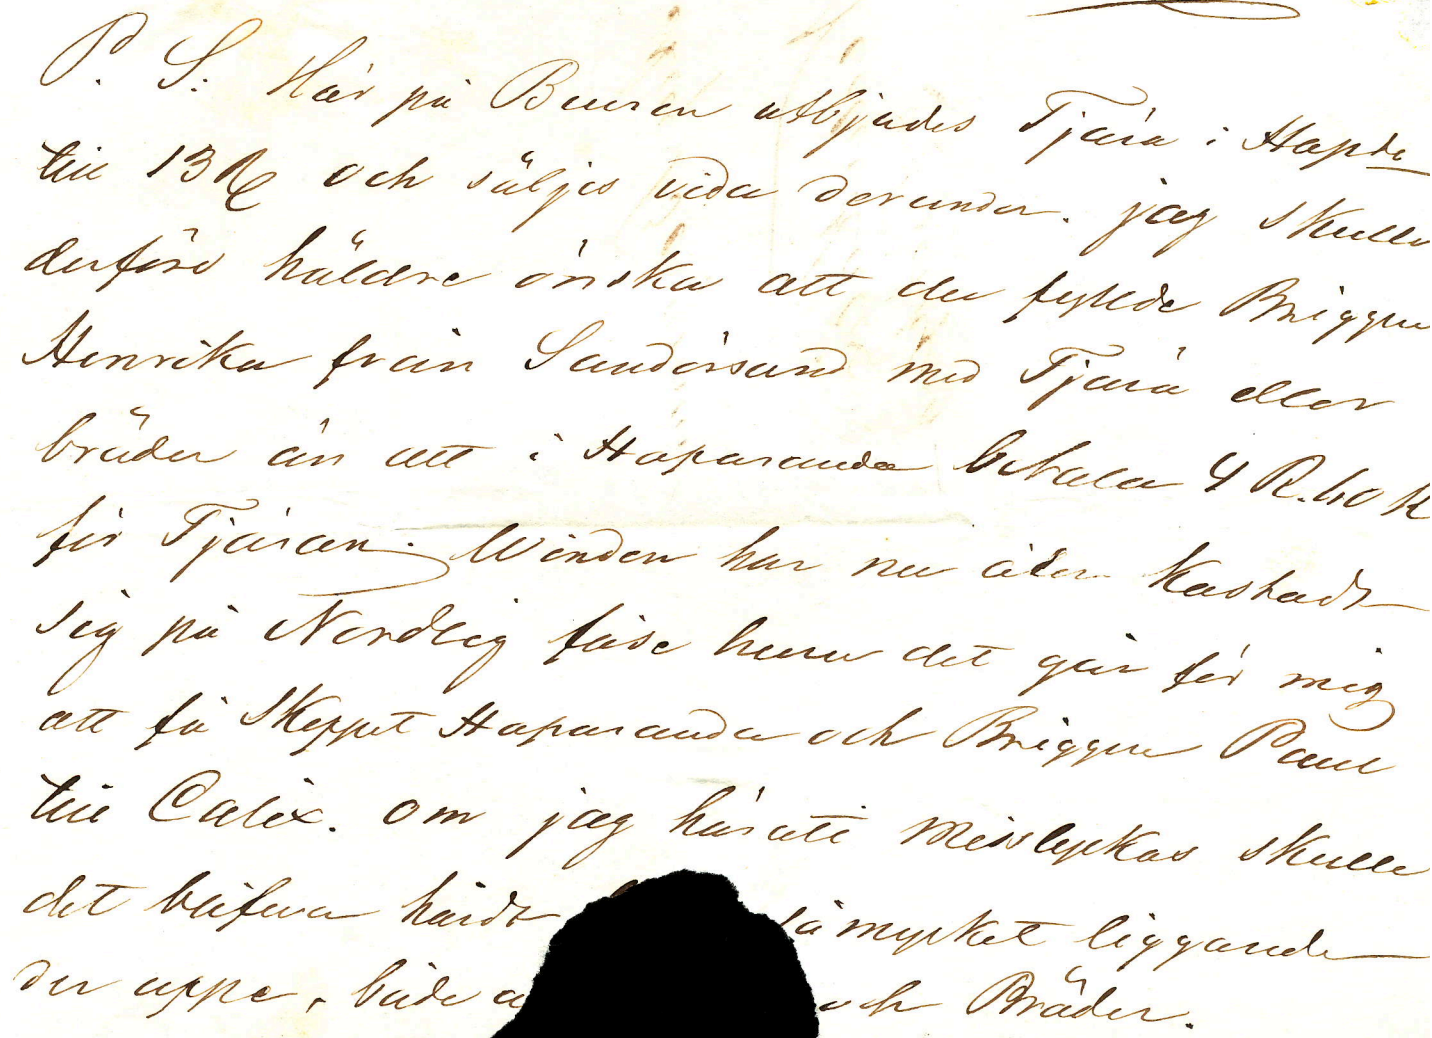 P. S: Här på Beursen utbjudes Tjära i Hapda
till 13 och säljes vida derunder. jag skulle
derföre häldre önska att du fyllde Briggen
Henrika från Sandörsund med Tjära eller
bräder än att i Haparanda betala 4 R. 60 K
för Tjäran. Winden har nu åter kastadt
sig på Nordlig får se huru det går för mig
att få Skeppet Haparanda och Briggen Paul
till Calix. om jag häruti misslyckas skulle
det blifva hårdt så mycket liggande
der uppe, både och Bräder.